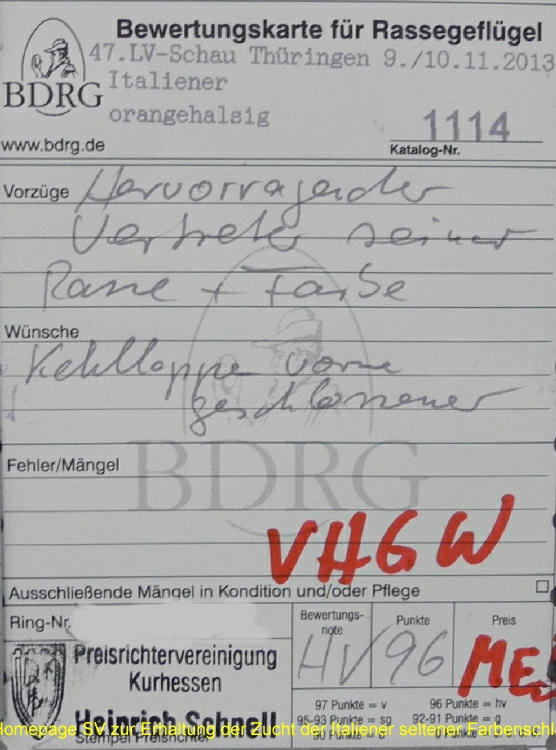 Bewertungskarte für Rassegeflügel
47.LV-Schau Thüringen 9./10.11.2013
Italiener
BDRG
orangehalsig
1114
www.bdrg.de
Katalog-Nr.
Vorzüge Hervorragender
Vertreter seiner
Rasse + Farbe
Wünsche
Kehllappe vorne
geschlossener
BDRG
Fehler/Mängel
VHGW
Ausschließende Mängel in Kondition und/oder Pflege
Ring-Nr.
Bewertungs-
note
Punkte
Preis
HV 96 ME
Preisrichtervereinigung
Kurhessen
Heinrich Schnell
Stempel Preisrichter
97 Punkte = v 96 Punkte = hv
95-93 Punkte = sg 92-91 Punkte = g
90 Punkte
Homepage SV zur Erhaltung der Zucht der Italiener seltener Farbensch